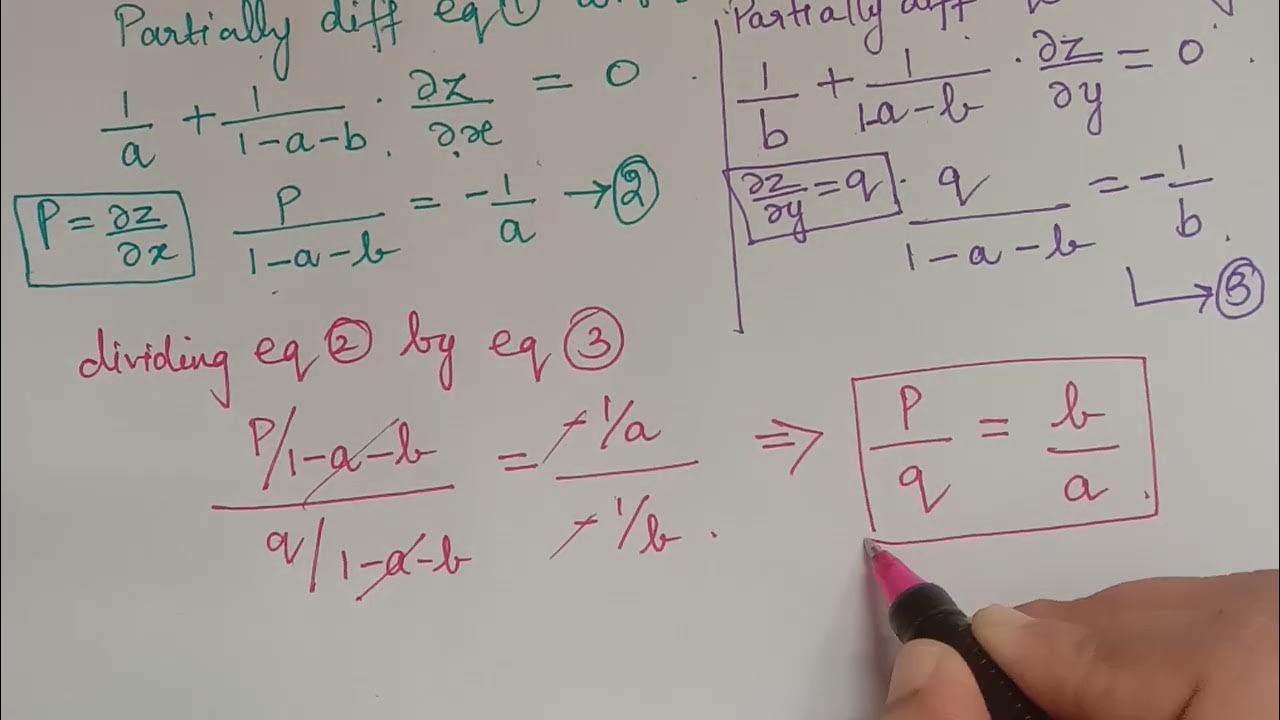 Partially diff eq ①
1/a + 1/(1-a-b) · ∂z/∂x = 0
P = ∂z/∂x
P/(1-a-b) = -1/a → ②
Partially diff
1/b + 1/(1-a-b) · ∂z/∂y = 0
∂z/∂y = q
q/(1-a-b) = -1/b
→ ③
dividing eq ② by eq ③
(P/1-a-b)/(q/1-a-b) = (-1/a)/(-1/b) ⇒ P/q = b/a